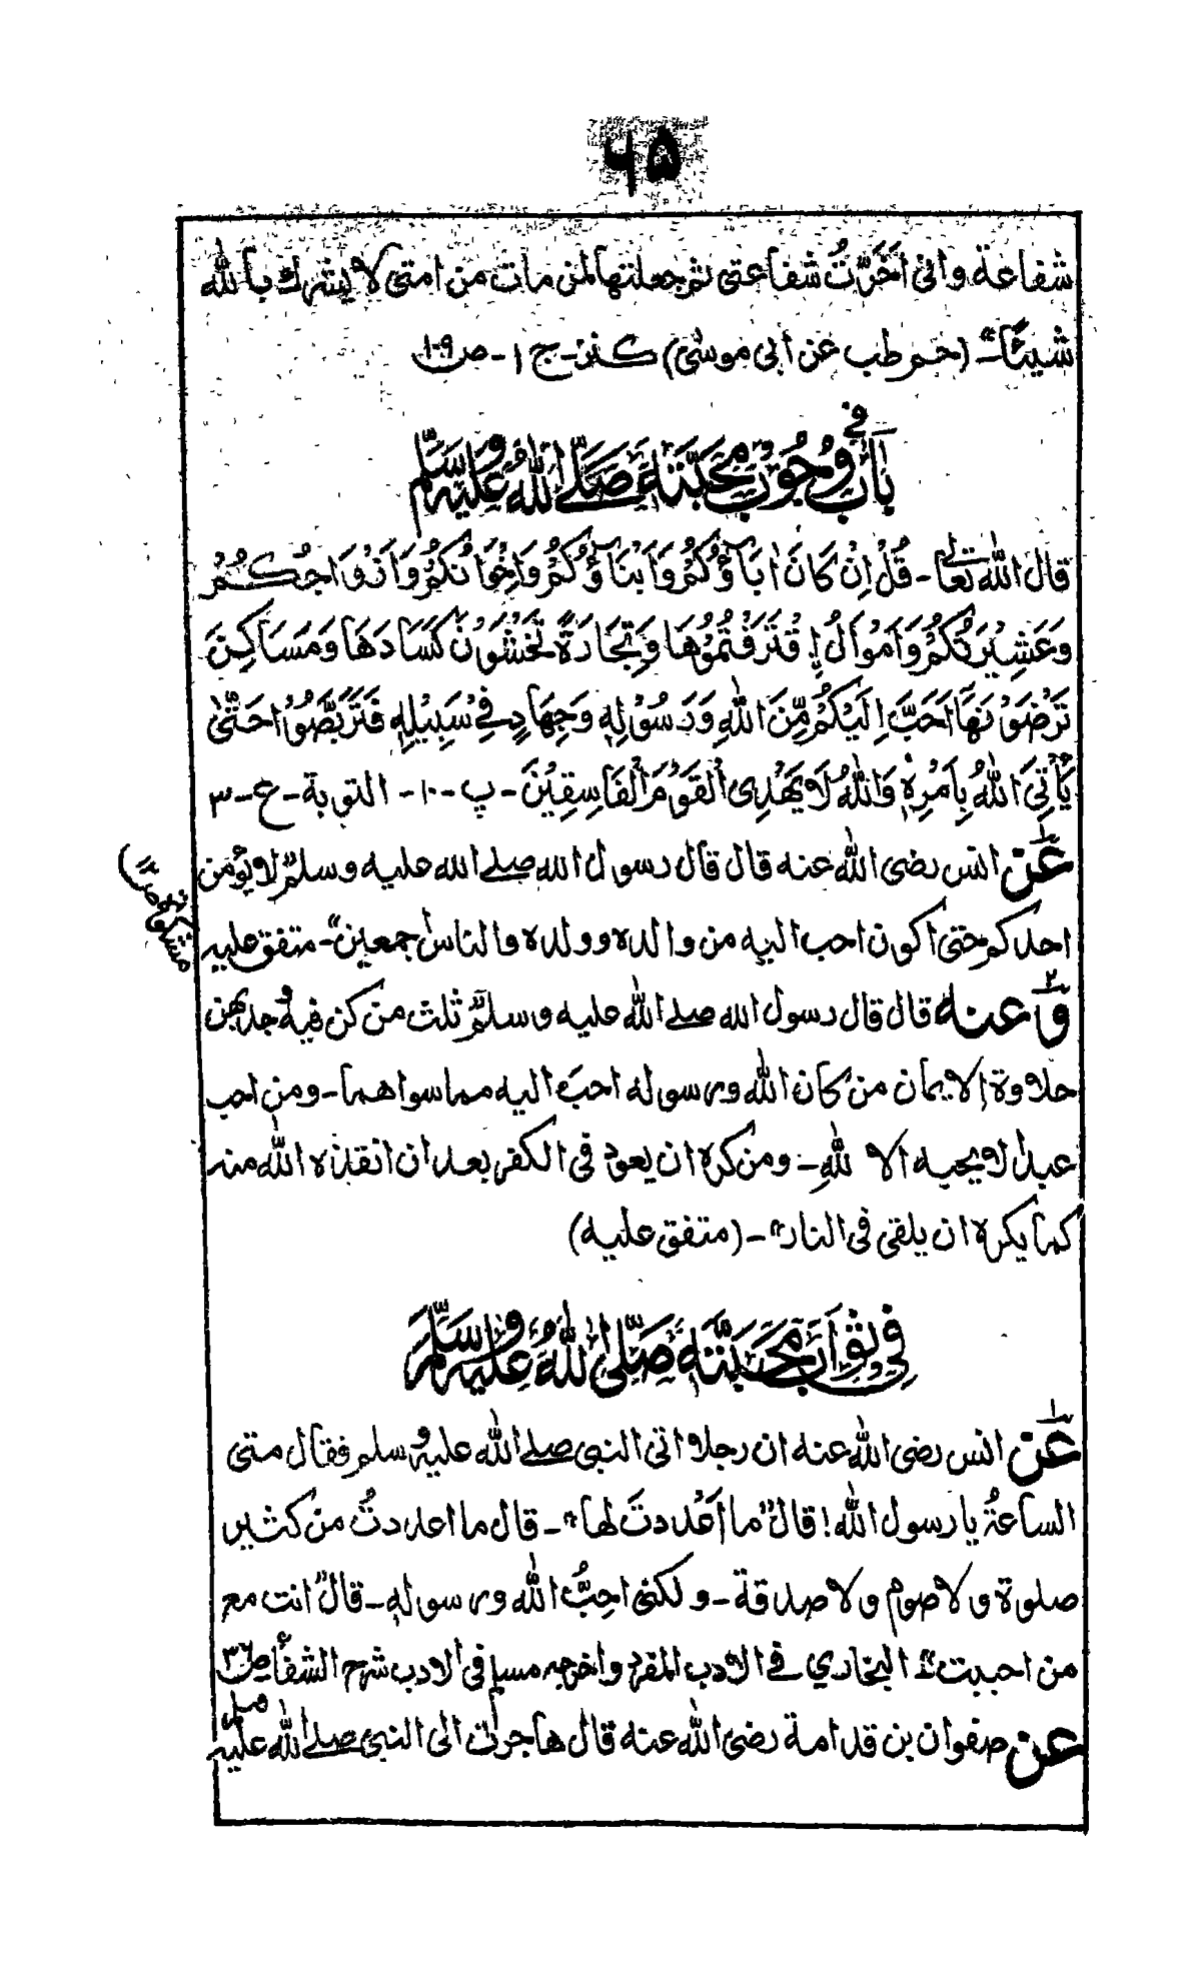 ۶۵
شفاعة وانى اَخَّرتُ شفاعتى ثم جعلتها لمن مات من امتى لا يشرك بالله
شيئًا" (حم طب عن ابى موسىٰ) كنز- ج ۱ - ص ۱۰۹
بَابٌ فِي وُجُوْبِ مَحَبَّتِهٖ صَلَّى اللهُ عَلَيْهِ وَسَلَّمَ
قال الله تعالىٰ - قُلْ اِنْ كَانَ اٰبَآؤُكُمْ وَاَبْنَآؤُكُمْ وَاِخْوَانُكُمْ وَاَزْوَاجُكُمْ
وَعَشِيْرَتُكُمْ وَاَمْوَالُ اِۨقْتَرَفْتُمُوْهَا وَتِجَارَةٌ تَخْشَوْنَ كَسَادَهَا وَمَسَاكِنَ
تَرْضَوْنَهَا اَحَبَّ اِلَيْكُمْ مِّنَ اللهِ وَرَسُوْلِهٖ وَجِهَادٍ فِيْ سَبِيْلِهٖ فَتَرَبَّصُوْا حَتّٰى
يَأْتِيَ اللهُ بِاَمْرِهٖ وَاللهُ لَا يَهْدِى الْقَوْمَ الْفَاسِقِيْنَ - پ - ۱۰ - التوبة - ع - ۳
۱ عَن انس رضى الله عنه قال قال رسول الله صلے الله عليه وسلم "لا يؤمن
احدكم حتى اكون احب اليه من والده وولده والناس اجمعين" - متفق عليه
مشكوٰة ص۱۲)
۲ وَعنه قال قال رسول الله صلے الله عليه وسلم "ثلث من كن فيه وجد بهن
حلاوة الايمان من كان الله ورسوله احبَّ اليه مما سواهما - ومن احب
عبدا لا يحبه الا للهِ - ومن كره ان يعود فى الكفر بعد ان انقذه الله منه
كما يكره ان يلقى فى النار" - (متفق عليه)
فِي ثَوَابِ مَحَبَّتِهٖ صَلَّى اللهُ عَلَيْهِ وَسَلَّمَ
۱ عَن انس رضى الله عنه ان رجلا اتى النبى صلے الله عليه وسلم فقال متى
الساعةُ يا رسول الله! قال "ما اَعْددتَ لها" - قال ما اعددتُ من كثير
صلوة ولا صوم ولا صدقة - ولكنى احِبُّ الله ورسوله - قال "انت مع
من احببت" البخاري في الادب المفرد واخرجه مسلم فى الادب شرح الشفأ ص۳۶
عن صفوان بن قدامة رضى الله عنه قال هاجرت الى النبى صلے الله عليه